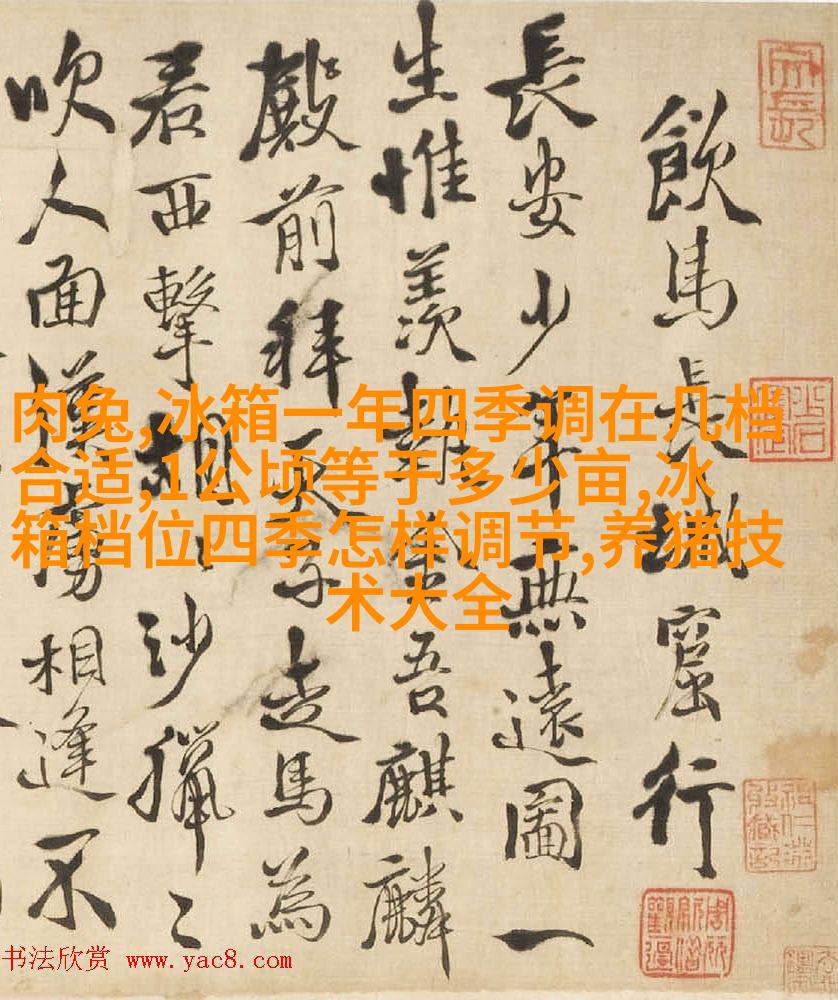 飲馬長城窟行
長安少年無遠圖一
生惟羨執金吾麒麟
殿前拜天子走馬為
君西擊胡〻沙獵〻
吹人面漢虜相逢不
肉兔,冰箱一年四季调在几档
合适,1公顷等于多少亩,冰
箱档位四季怎样调节,养猪技
术大全
书法欣赏 www.yac8.com